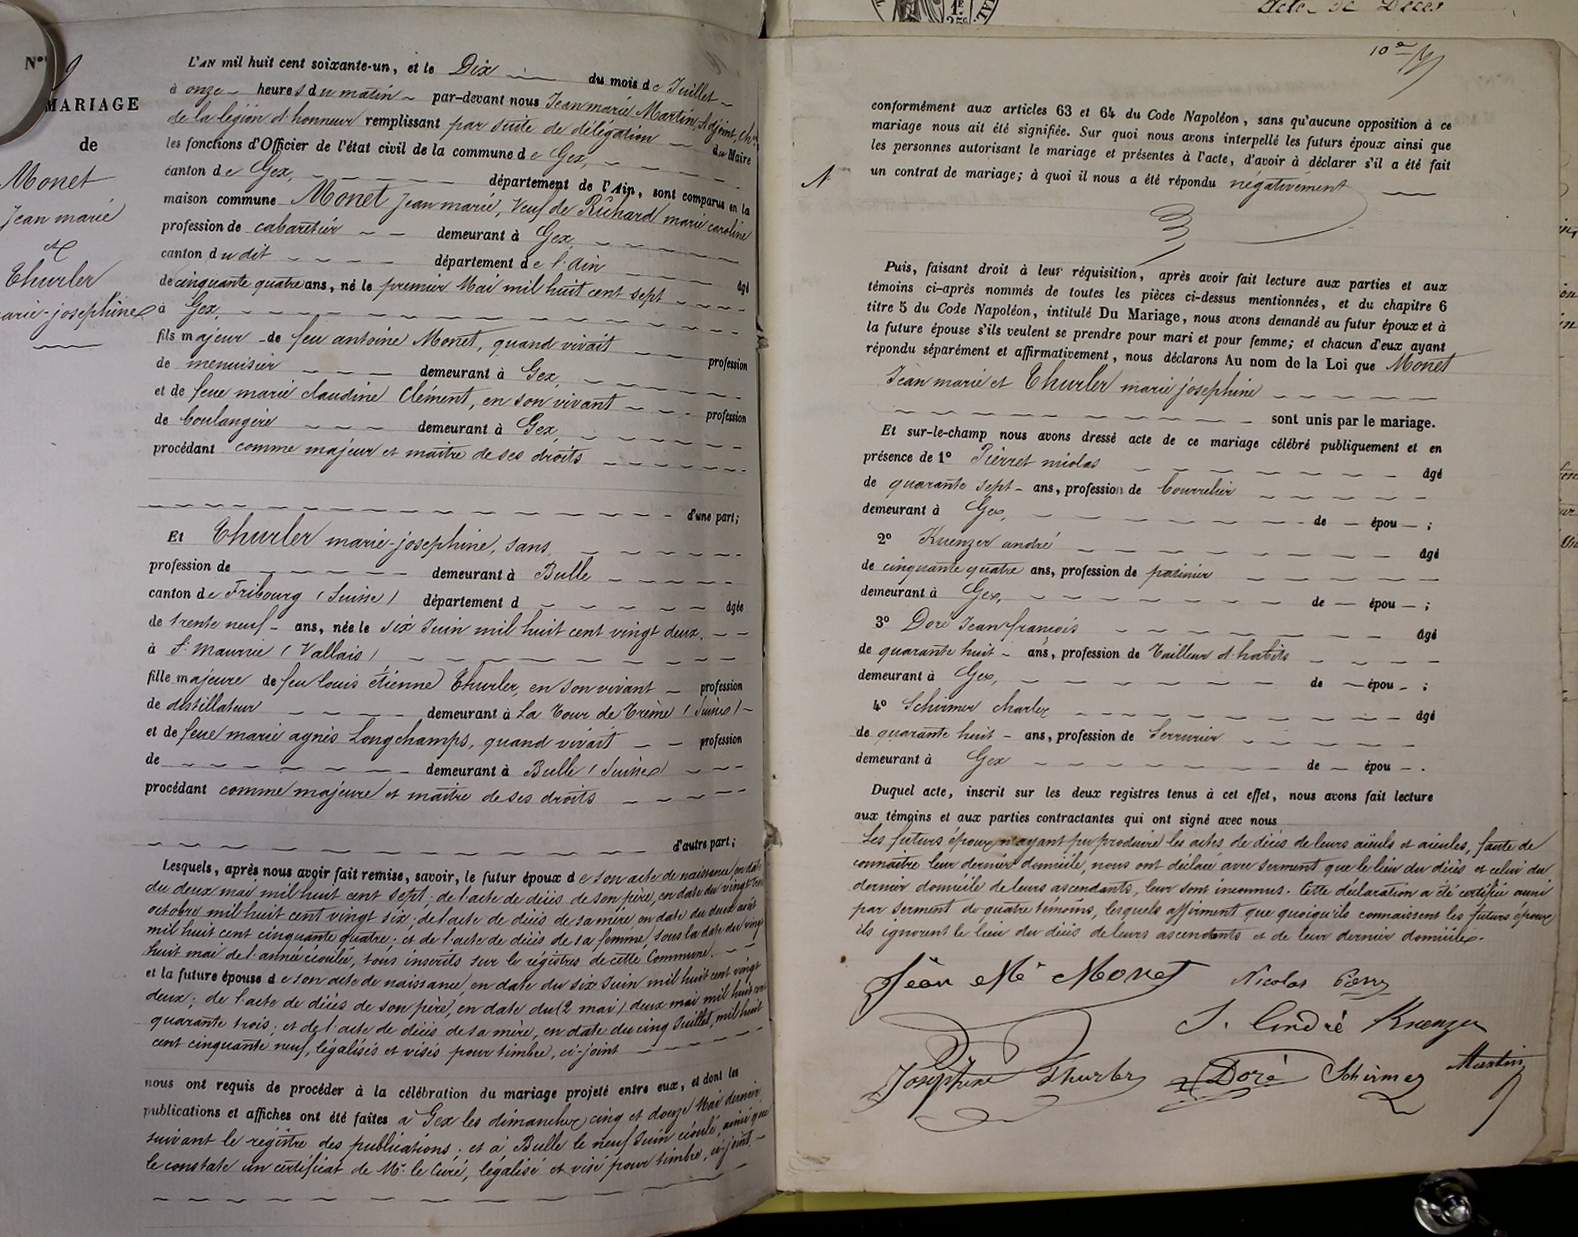 Nº 9
MARIAGE
de
Monet
Jean marie
et
Thurler
marie-josephine
L'AN mil huit cent soixante-un, et le Dix du mois de Juillet
à onze heures du matin par-devant nous Jean marie Martin, Adjoint, Chr
de la légion d'honneur remplissant par suite de délégation du Maire
les fonctions d'Officier de l'état civil de la commune de Gex,
canton de Gex, département de l'Ain, sont comparus en la
maison commune Monet Jean marie, Veuf de Richard marie caroline
profession de cabaretier demeurant à Gex,
canton du dit département de l'Ain âgé
de cinquante quatre ans, né le premier Mai mil huit cent sept
à Gex,
fils majeur de feu antoine Monet, quand vivait profession
de menuisier demeurant à Gex,
et de feue marie claudine Clément, en son vivant profession
de boulangère demeurant à Gex,
procédant comme majeur et maître de ses droits
d'une part;
Et Thurler marie-josephine, sans
profession de demeurant à Bulle
canton de Fribourg (Suisse) département d âgée
de trente neuf ans, née le six Juin mil huit cent vingt deux,
à St Maurice (Vallais)
fille majeure de feu louis étienne Thurler, en son vivant profession
de distillateur demeurant à La Tour de Trême (Suisse)
et de feue marie agnès Longchamps, quand vivait profession
de demeurant à Bulle (Suisse)
procédant comme majeure et maître de ses droits
d'autre part;
Lesquels, après nous avoir fait remise, savoir, le futur époux de son acte de naissance, en date
du deux mai mil huit cent sept; de l'acte de décès de son père, en date du vingt
octobre mil huit cent vingt six; de l'acte de décès de sa mère, en date du deux août
mil huit cent cinquante quatre; et de l'acte de décès de sa femme, sous la date du vingt
huit mai de l'année écoulée, tous inscrits sur le régistres de cette Commune.
et la future épouse de son acte de naissance, en date du six Juin mil huit cent vingt
deux; de l'acte de décès de son père, en date du (2 mai) deux mai mil huit cent
quarante trois; et de l'acte de décès de sa mère, en date du cinq Juillet, mil huit
cent cinquante neuf, légalisés et visés pour timbre, ci-joint
nous ont requis de procéder à la célébration du mariage projeté entre eux, et dont les
publications et affiches ont été faites à Gex les dimanches cinq et douze Mai dernier,
suivant le registre des publications; et à Bulle le neuf Juin écoulé, ainsi que
le constate un certificat de Mr le Curé, légalisé et visé pour timbre, ci-joint.
Acte de Décès
10e
conformément aux articles 63 et 64 du Code Napoléon, sans qu'aucune opposition à ce
mariage nous ait été signifiée. Sur quoi nous avons interpellé les futurs époux ainsi que
les personnes autorisant le mariage et présentes à l'acte, d'avoir à déclarer s'il a été fait
un contrat de mariage; à quoi il nous a été répondu négativement
Puis, faisant droit à leur réquisition, après avoir fait lecture aux parties et aux
témoins ci-après nommés de toutes les pièces ci-dessus mentionnées, et du chapitre 6
titre 5 du Code Napoléon, intitulé Du Mariage, nous avons demandé au futur époux et à
la future épouse s'ils veulent se prendre pour mari et pour femme; et chacun d'eux ayant
répondu séparément et affirmativement, nous déclarons Au nom de la Loi que Monet
Jean marie et Thurler marie josephine
sont unis par le mariage.
Et sur-le-champ nous avons dressé acte de ce mariage célébré publiquement et en
présence de 1º Pierret nicolas âgé
de quarante sept ans, profession de bourrelier
demeurant à Gex, de épou ;
2º Kuenzer andré âgé
de cinquante quatre ans, profession de
demeurant à Gex, de épou ;
3º Doré Jean françois âgé
de quarante huit ans, profession de Tailleur d'habits
demeurant à Gex, de épou ;
4º Schirmer charles âgé
de quarante huit ans, profession de Serrurier
demeurant à Gex de épou .
Duquel acte, inscrit sur les deux registres tenus à cet effet, nous avons fait lecture
aux témoins et aux parties contractantes qui ont signé avec nous
Les futurs époux n'ayant pu produire les actes de décès de leurs aïeuls et aieules, faute de
connaître leur dernier domicile, nous ont déclaré avec serment que le lieu du décès et celui du
dernier domicile de leurs ascendants, leur sont inconnus. Cette déclaration a été certifiée aussi
par serment de quatre témoins, lesquels affirment que quoiqu'ils connaissent les futurs époux
ils ignorent le lieu du décès de leurs ascendants et de leur dernier domicile.
Jean Me Monet Nicolas
J. André Kuenzer
Josephine Thurler Doré Schirmer Martin